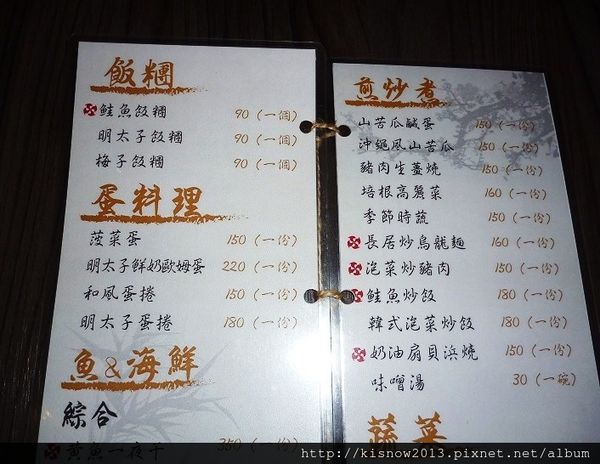 飯糰
鮭魚飯糰 90 (一個)
明太子飯糰 90 (一個)
梅子飯糰 90 (一個)
蛋料理
菠菜蛋 150 (一份)
明太子鮮奶歐姆蛋 220 (一份)
和風蛋捲 150 (一份)
明太子蛋捲 180 (一份)
魚&海鮮
綜合
黃魚一夜干 350 (一份)
煎炒煮
山苦瓜鹹蛋 150 (一份)
沖繩風山苦瓜 150 (一份)
豬肉生薑燒 150 (一份)
培根高麗菜 160 (一份)
季節時蔬 150 (一份)
長居炒烏龍麵 160 (一份)
泡菜炒豬肉 150 (一份)
鮭魚炒飯 180 (一份)
韓式泡菜炒飯 180 (一份)
奶油扇貝浜燒 150 (一份)
味噌湯 30 (一碗)
蔬菜
http://kisnow2013.pixnet.net/album